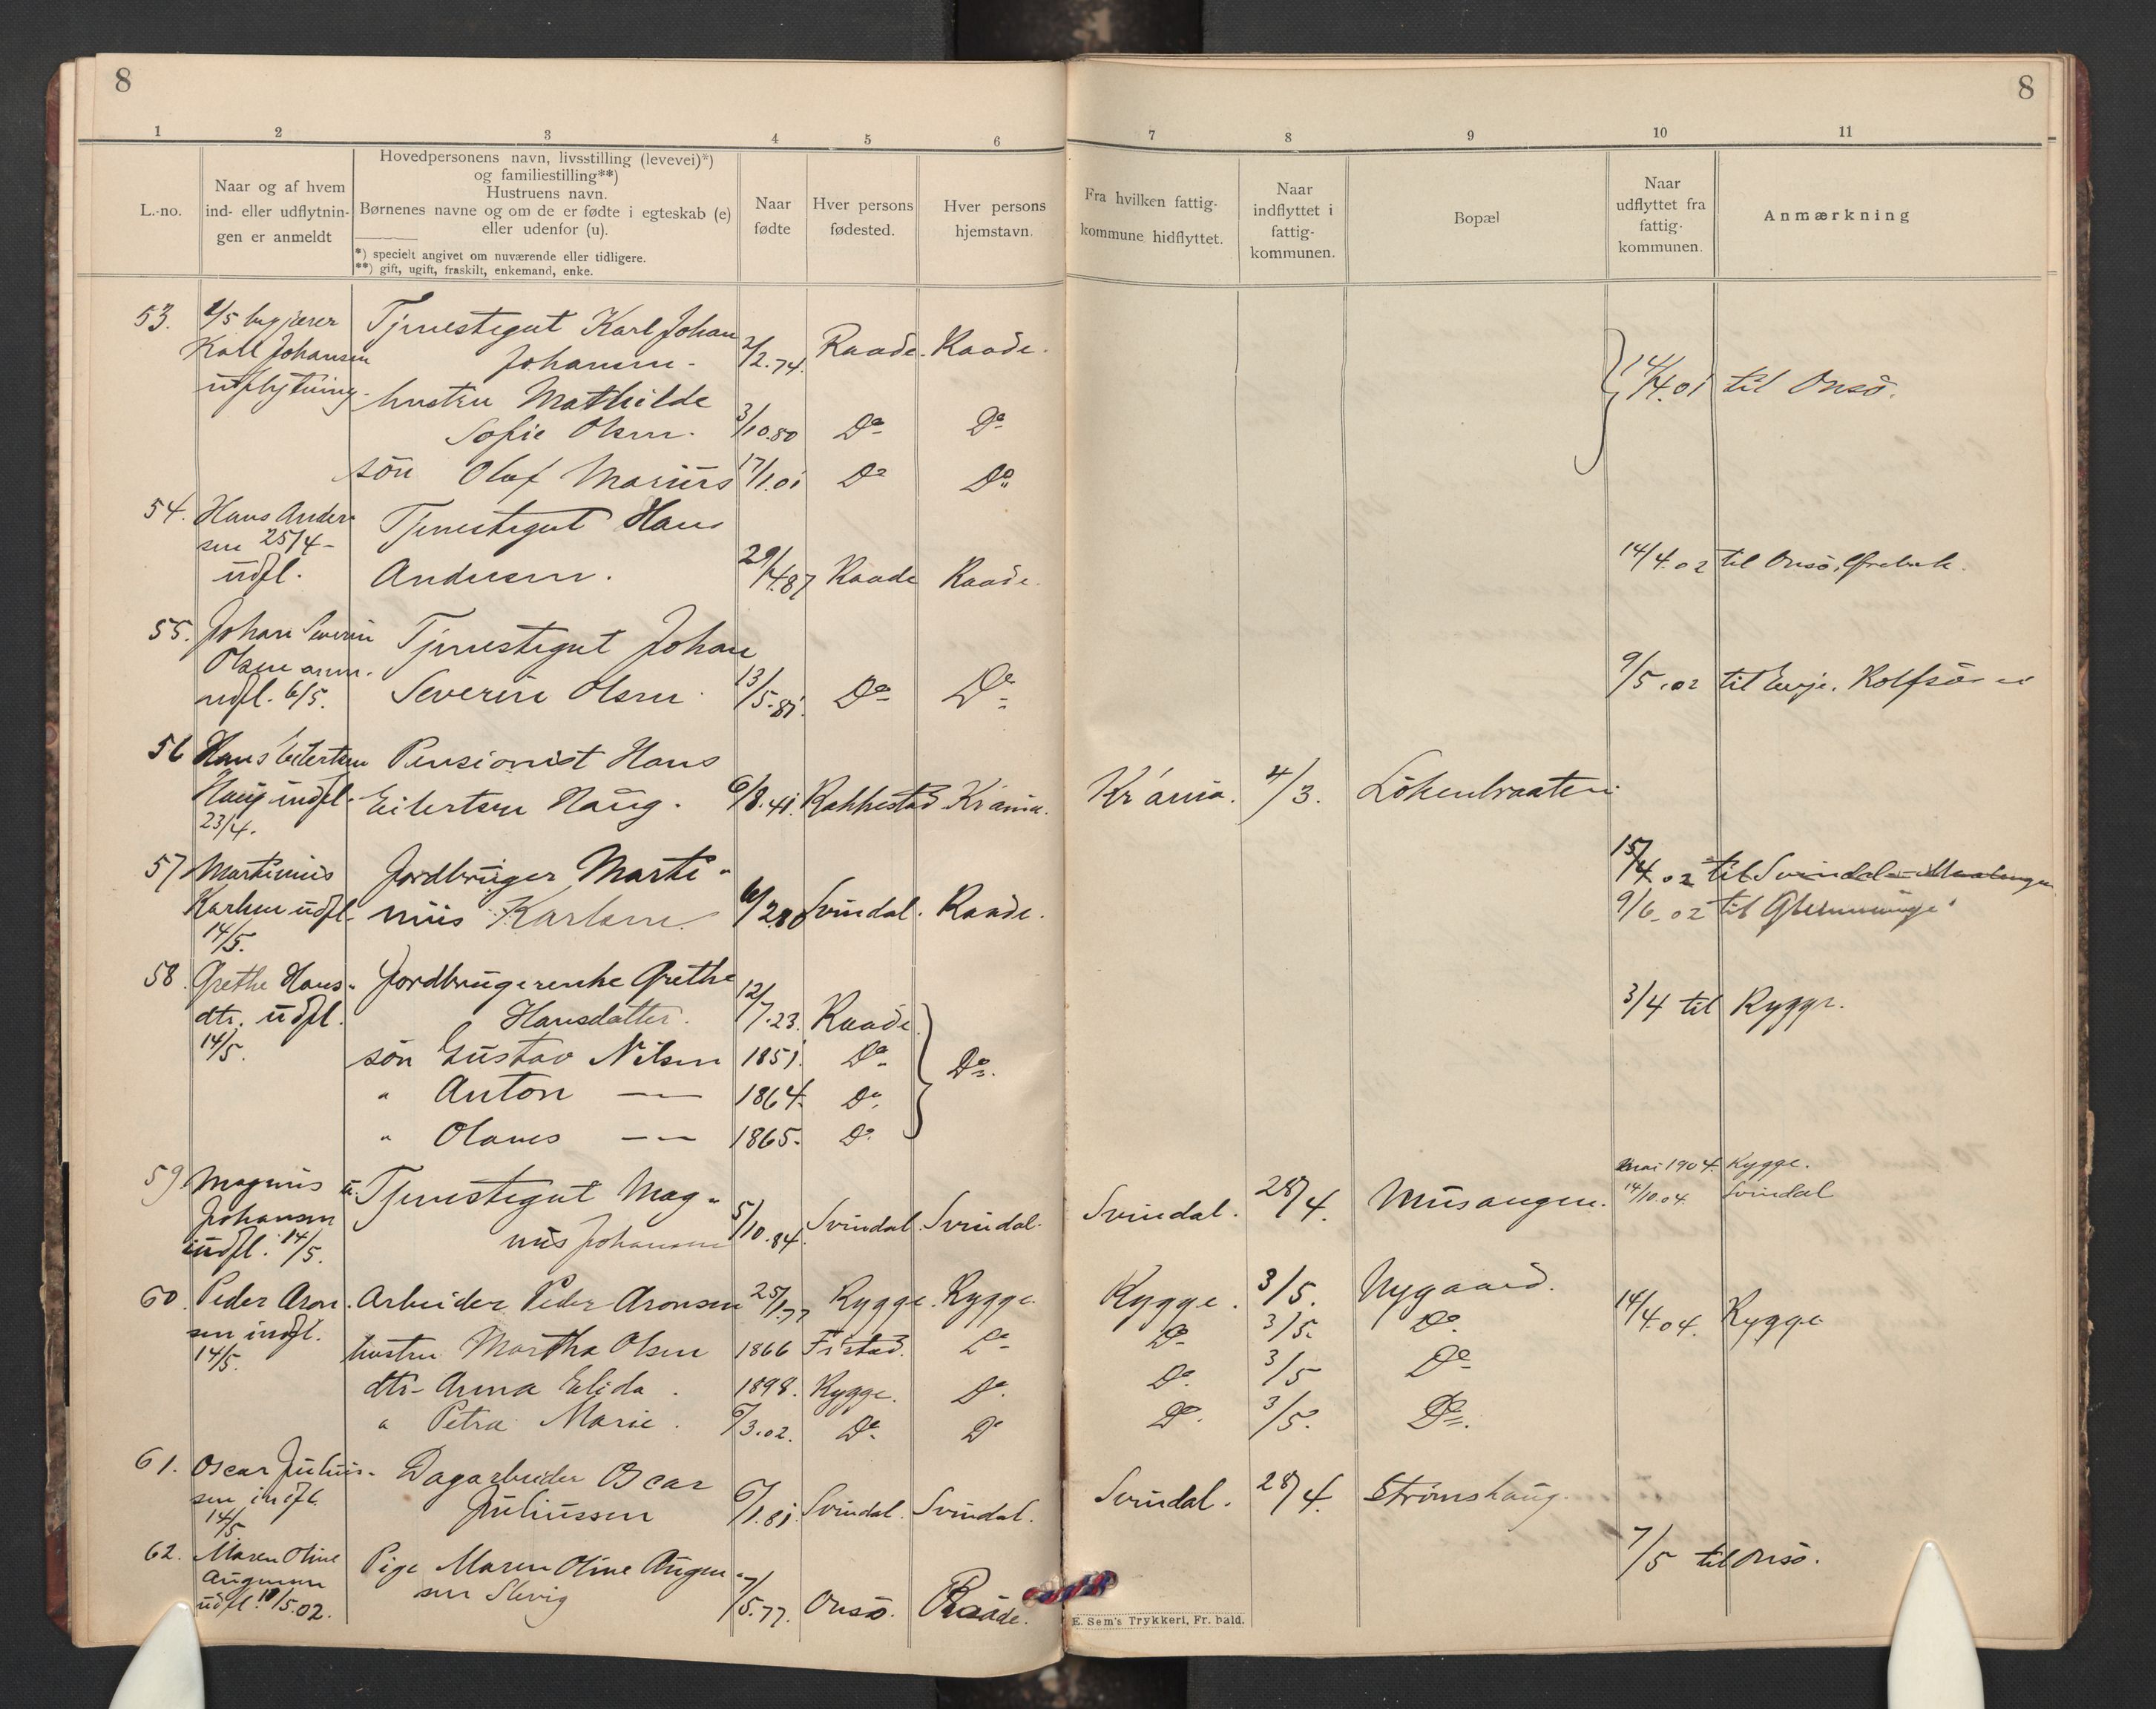 8
8
1 2 3 4 5 6 7 8 9 10 11
L.-no.
Naar og af hvem
ind- eller udflytnin-
gen er anmeldt
Hovedpersonens navn, livsstilling (levevei)*)
og familiestilling**)
Hustruens navn.
Børnenes navne og om de er fødte i egteskab (e)
eller udenfor (u).
*) specielt angivet om nuværende eller tidligere.
**) gift, ugift, fraskilt, enkemand, enke.
Naar
fødte
Hver persons
fødested.
Hver persons
hjemstavn.
Fra hvilken fattig-
kommune hidflyttet.
Naar
indflyttet i
fattig-
kommunen.
Bopæl
Naar
udflyttet fra
fattig-
kommunen.
Anmærkning
53. 1/5 begjærer Tjenestegut Karl Johan
Karl Johansen Johansen. 2/2.74. Raade. Raade.
udflytning. hustru Mathilde 14/4.01 til Onsö.
Sofie Olsen. 3/10.80 Do Do
sön Olaf Marius 17/1.01 Do Do
54. Hans Ander- Tjenestegut Hans
sen 25/4 14/4.02 til Onsö,
udfl. Andersen. 29/4.87 Raade Raade.
55. Johan Severin Tjenestegut Johan
Olsen anm. 9/5.02 til Evje.
udfl. 6/5. Severin Olsen. 13/5.81. Do Do
56 Hans Eilertsen Pensionist Hans
Haug indfl. Eilertsen Haug. 6/8.41. Rakkestad Kr'ania. Kr'ania. 4/3. Lökenbraaten.
23/4.
57 Martinius Jordbruger Marti- 15/4.02 til Svindal
Karlsen udfl. nius Karlsen 6/2.80 Svindal. Raade. 9/6.02 til Glemminge.
14/5.
58. Grethe Hans- Jordbrugerenke Grethe
dtr. udfl. Hansdatter. 12/7.23. Raade. 3/4 til Rygge.
14/5. sön Gustav Nilsen 1851. Do Do
" Anton — 1864. Do
" Olaves — 1865. Do
59 Magnus u. Tjenestegut Mag- mai 1904. Rygge.
Johansen nus Johansen 5/10.84. Svindal. Svindal. Svindal. 28/4. Musangen. 14/10.04. Svindal
indfl. 14/5.
60. Peder Aron- Arbeider Peder Aronsen 25/1.77 Rygge. Rygge. Rygge. 3/5. Nygaard. 14/4.04. Rygge
sen indfl. hustru Martha Olsen 1866 Fr.stad. Do Do 3/5. Do.
14/5. dtr. Anna Elida. 1898. Rygge. Do. Do. 3/5 Do
" Petra Marie. 6/3.02. Do. Do Do. 3/5. Do.
61. Oscar Julius- Dagarbeider Oscar
sen indfl. Juliussen 6/1.81. Svindal. Svindal. Svindal. 28/4. Strömshaug.
14/5.
62. Maren Oline Pige Maren Oline Augen- 7/5 til Onsö.
Augensen sen Slevig 7/5.77. Onsö. Raade.
udfl. 10/5.02.
E. Sem's Trykkeri, Fr. hald.